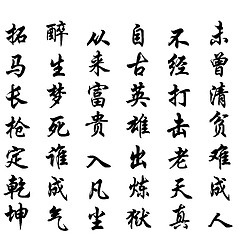 未曾清贫难成人
不经打击老天真
自古英雄出炼狱
从来富贵入凡尘
醉生梦死谁成气
拓马长枪定乾坤